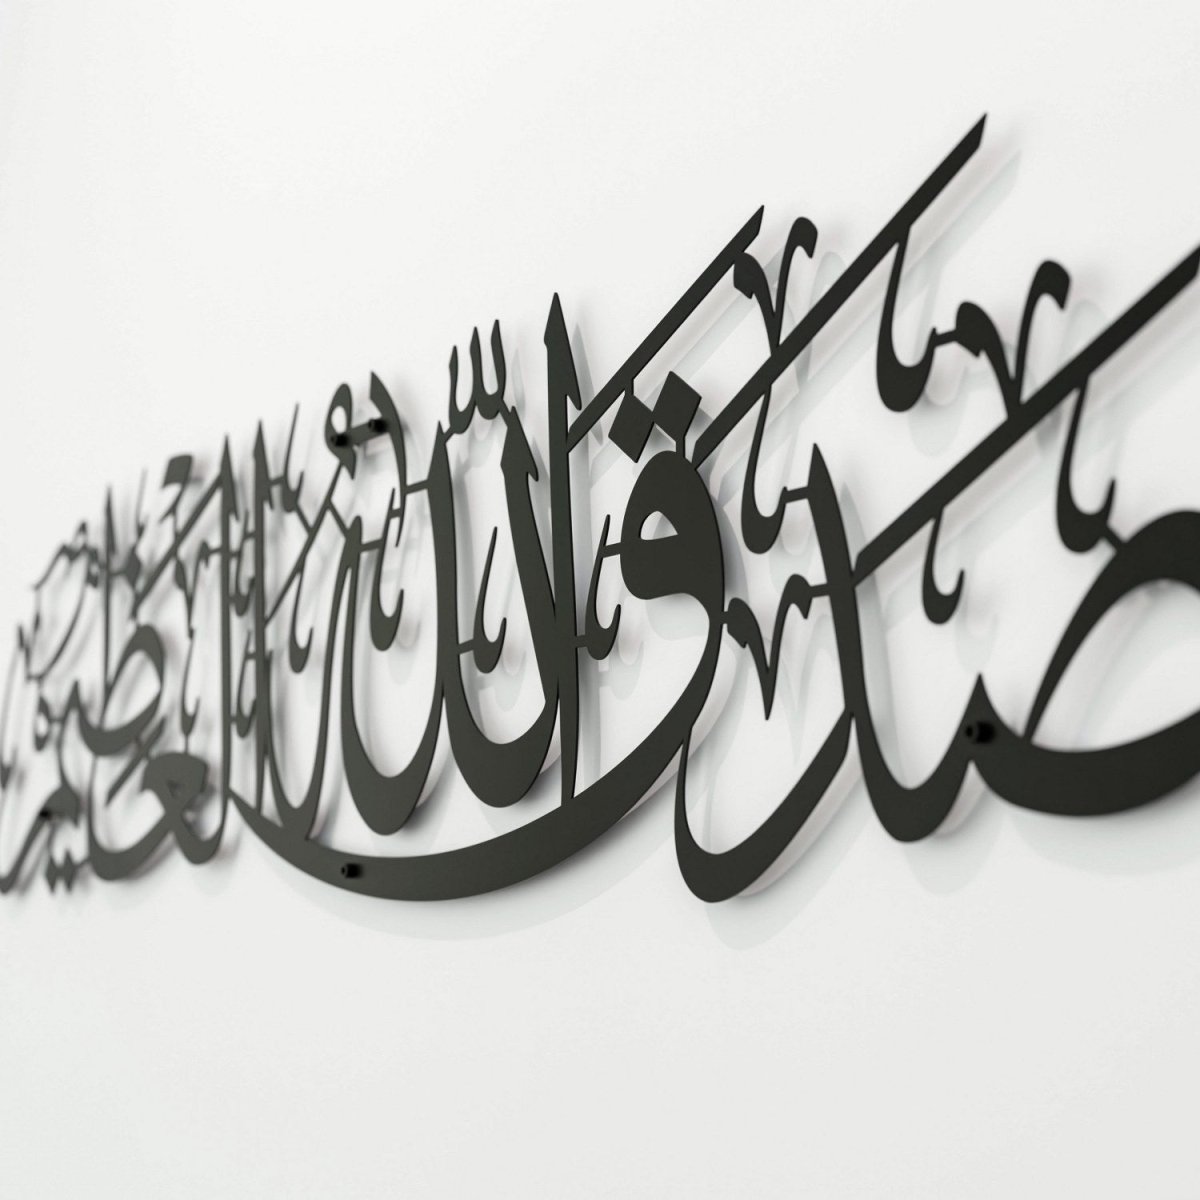 صَدَقَ اللّٰهُ الْعَظِيمُ